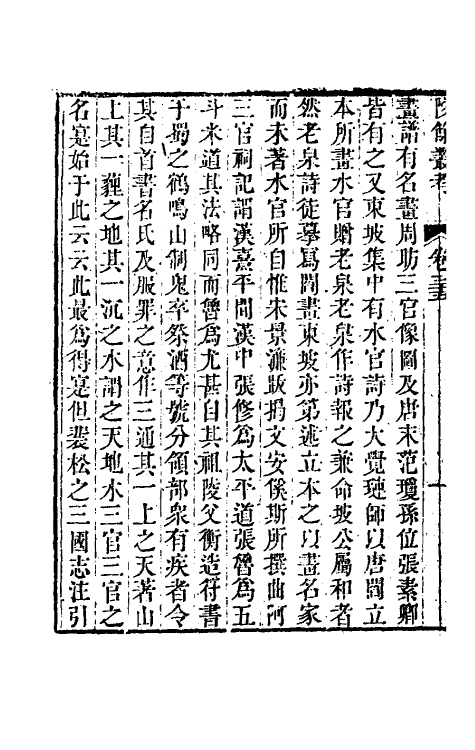 陔餘叢考 卷三十五 一
畫譜有名畫周昉三官像圖及唐末范瓊孫位張素卿
皆有之又東坡集中有水官詩乃大覺璉師以唐閻立
本所畫水官贈老泉老泉作詩報之兼命坡公屬和者
然老泉詩徒摹寫閻畫東坡亦第述立本之以畫名家
而未著水官所自惟宋景濂跋揭文安傒斯所撰曲阿
三官祠記謂漢熹平間漢中張修爲太平道張魯爲五
斗米道其法略同而魯爲尤甚自其祖陵父衡造符書
于蜀之鶴鳴山制鬼卒祭酒等號分領部衆有疾者令
其自首書名氏及服罪之意作三通其一上之天著山
上其一薶之地其一沉之水謂之天地水三官三官之
名寔始于此云云此最爲得寔但裴松之三國志注引